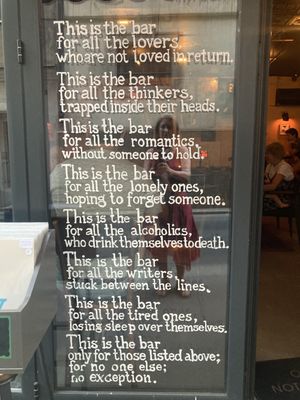 This is the bar
for all the lovers,
who are not loved in return.
This is the bar
for all the thinkers,
trapped inside their heads.
This is the bar
for all the romantics,
without someone to hold.
This is the bar
for all the lonely ones,
hoping to forget someone.
This is the bar
for all the alcoholics,
who drink themselves to death.
This is the bar
for all the writers,
stuck between the lines.
This is the bar
for all the tired ones,
losing sleep over themselves.
This is the bar
only for those listed above;
for no one else;
no exception.